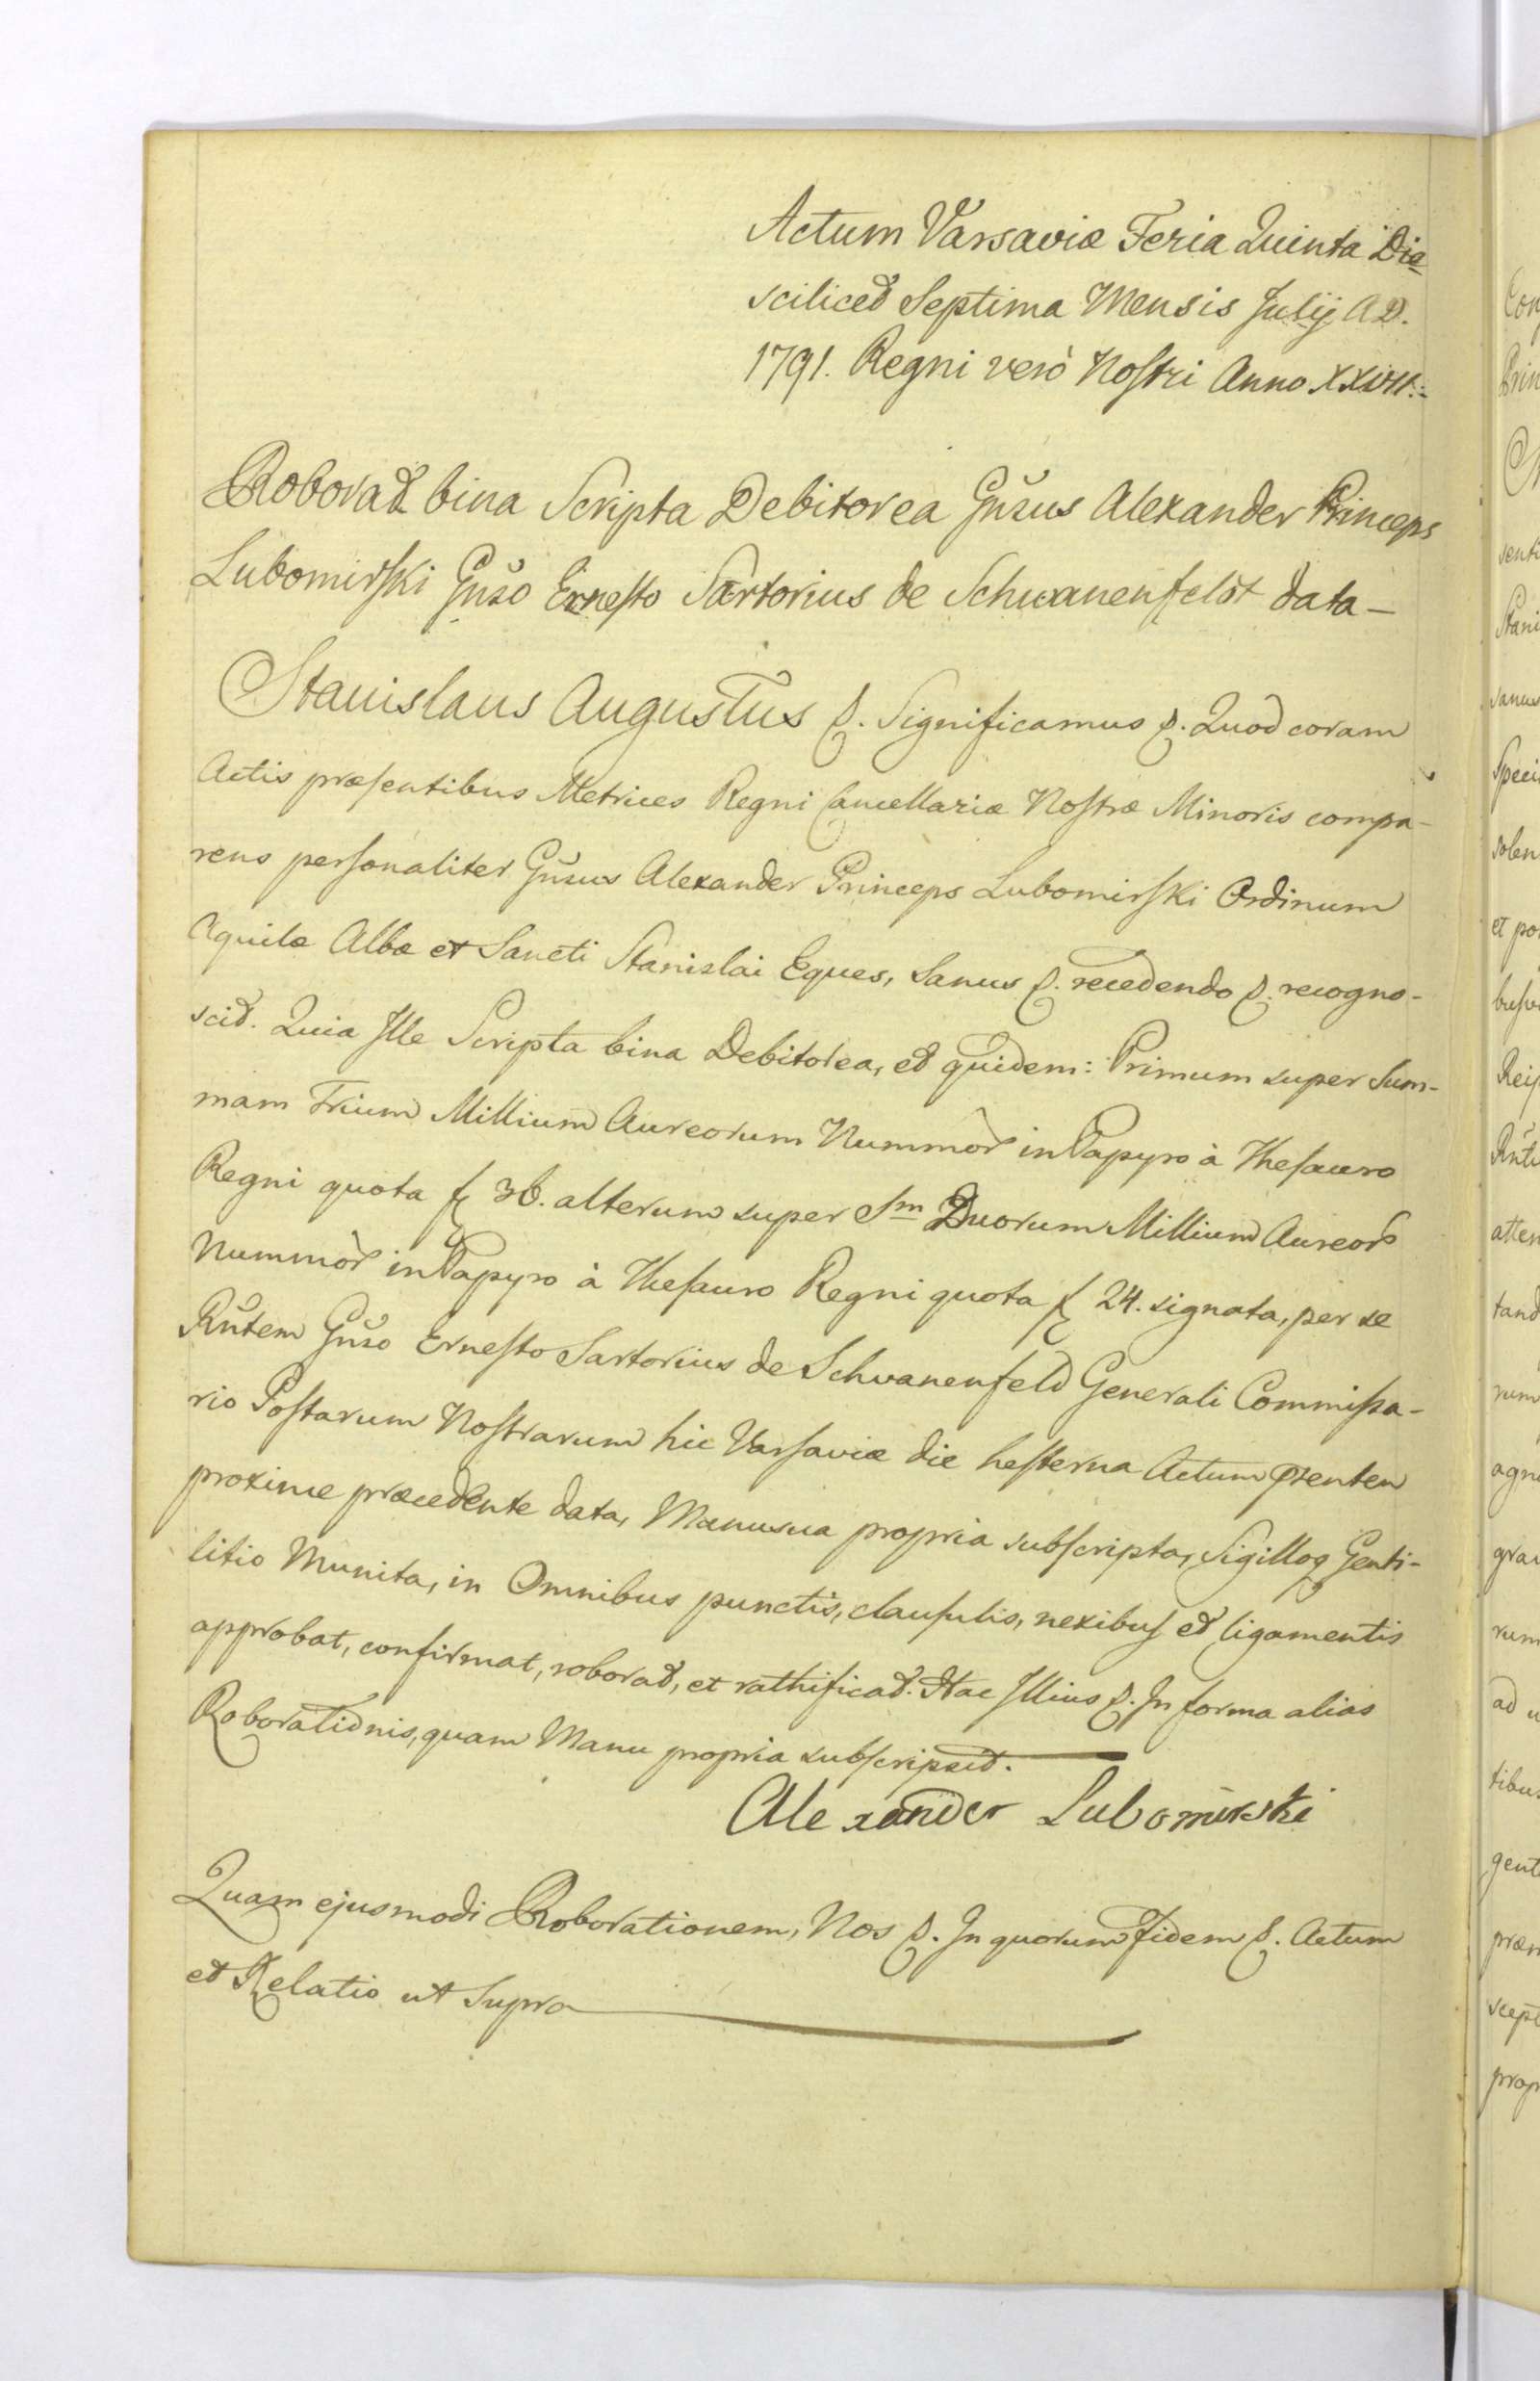 Actum Varsaviæ Feria Quinta Die
scilicet Septima Mensis Julij A.D.
1791. Regni verò Nostri Anno XXVII.
Roborat bina Scripta Debitorea Gnsus Alexander Princeps
Lubomirski Gnso Ernesto Sartorius de Schwanenfeldt data —
Stanislaus Augustus &. Significamus &. Quod coram
Actis præsentibus Metrices Regni Cancellariæ Nostræ Minoris compa-
rens personaliter Gnsus Alexander Princeps Lubomirski Ordinum
Aquilæ Albæ et Sancti Stanislai Eques, Sanus &. recedendo &. recogno-
scit. Quia Ille Scripta bina Debitorea, et quidem: Primum super Sum-
mam Trium Millium Aureorum Nummor in Papyro à Thesauro
Regni quota f 36. alterum super Sm Duorum Millium Aureor
Nummor in Papyro à Thesauro Regni quota f 24. signata, per se
Rntem Gnso Ernesto Sartorius de Schwanenfeld Generali Commissa-
rio Postarum Nostrarum hic Varsaviæ die hesterna Actum præntem
proxime præcedente data, Manu sua propria subscripta, Sigilloq Genti-
litio Munita, in Omnibus punctis, clausulis, nexibus et ligamentis
approbat, confirmat, roborat, et rathificat. Hac Illius &. In forma alias
Roborationis, quam Manu propria subscripsit.
Alexander Lubomirski
Quam ejusmodi Roborationem, Nos &. In quorum Fidem &. Actum
et Relatio ut Supra